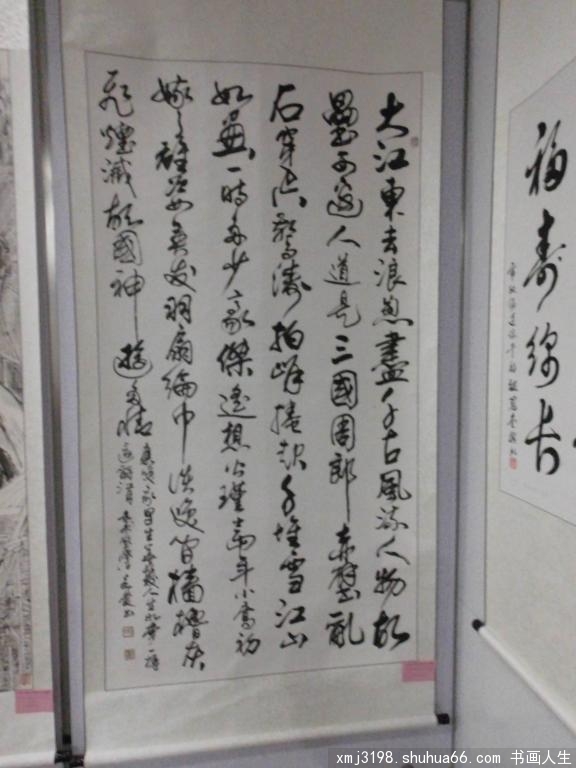 大江東去浪盡千古風流人物故
壘西邊人道是三國周郎赤壁亂
石穿空驚濤拍岸捲起千堆雪江山
如畫一時多少豪傑遙想公瑾當年小喬初
嫁了雄姿英發羽扇綸巾談笑間檣櫓灰
飛煙滅故國神遊多情
應笑我早生華髮人生如夢一樽
還酹江月
福壽綿長
xmj3198.shuhua66.com 书画人生